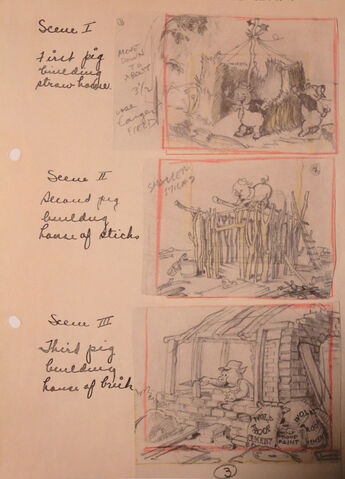 Scene I
First pig
building
straw house.
MOVE
DOWN
TO
ABOUT
3/2
USE
LARGER
FIELD
Scene II
Second pig
building
house of sticks
SMALLER
STICKS
Scene III
Third pig
building
house of brick
WOLF
PROOF
CEMENT
WOLF
PROOF
PAINT
WOLF
3